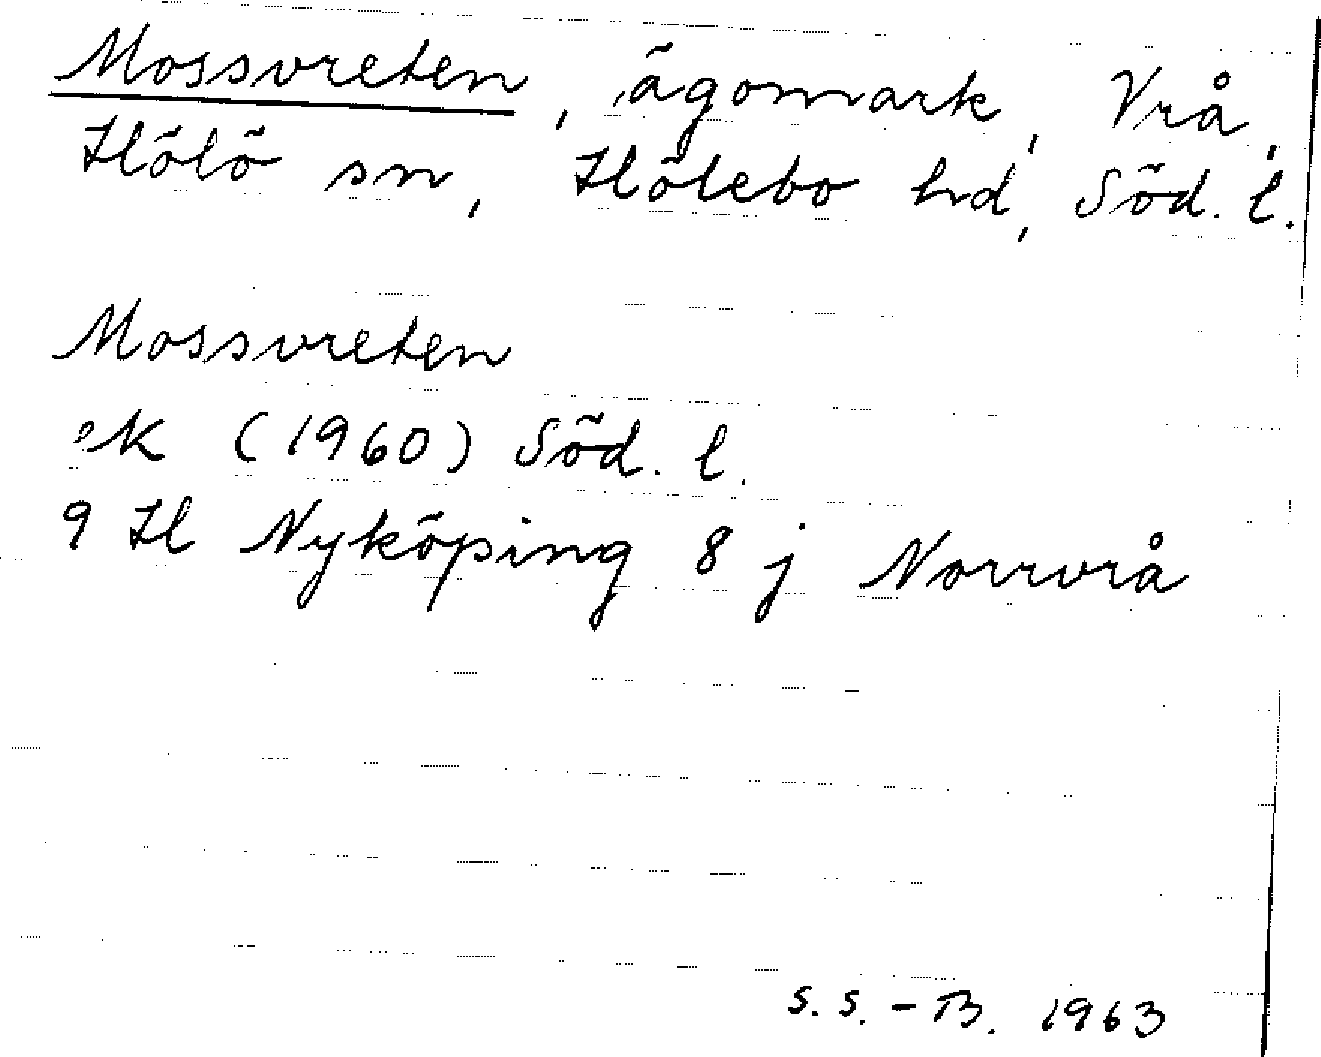 Mossvreten, ägomark, Vrå,
Hölö sn, Hölebo hd, Söd. l.
Mossvreten
ek (1960) Söd. l.
9 H Nyköping 8 j Norrvrå
S. S. - B. 1963